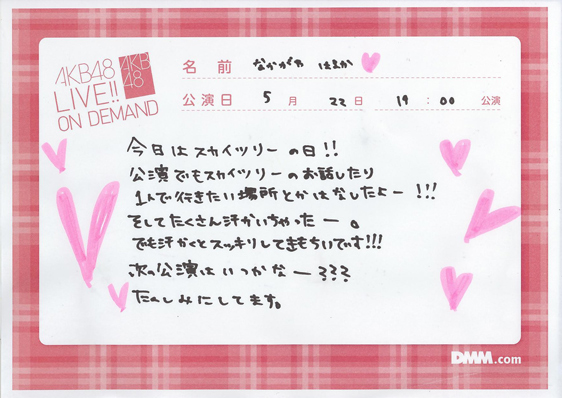 AKB48
LIVE!!
ON DEMAND
AKB
48
名前 なかがわ はるか
公演日 5月 22日 19:00 公演
今日はスカイツリーの日!!
公演でもスカイツリーのお話したり
1人で行きたい場所とかはなしたよー!!!
そしてたくさん汗かいちゃったー。
でも汗かくとスッキリしてきもちいです!!!
次の公演はいつかなー???
たのしみにしてます。
DMM.com